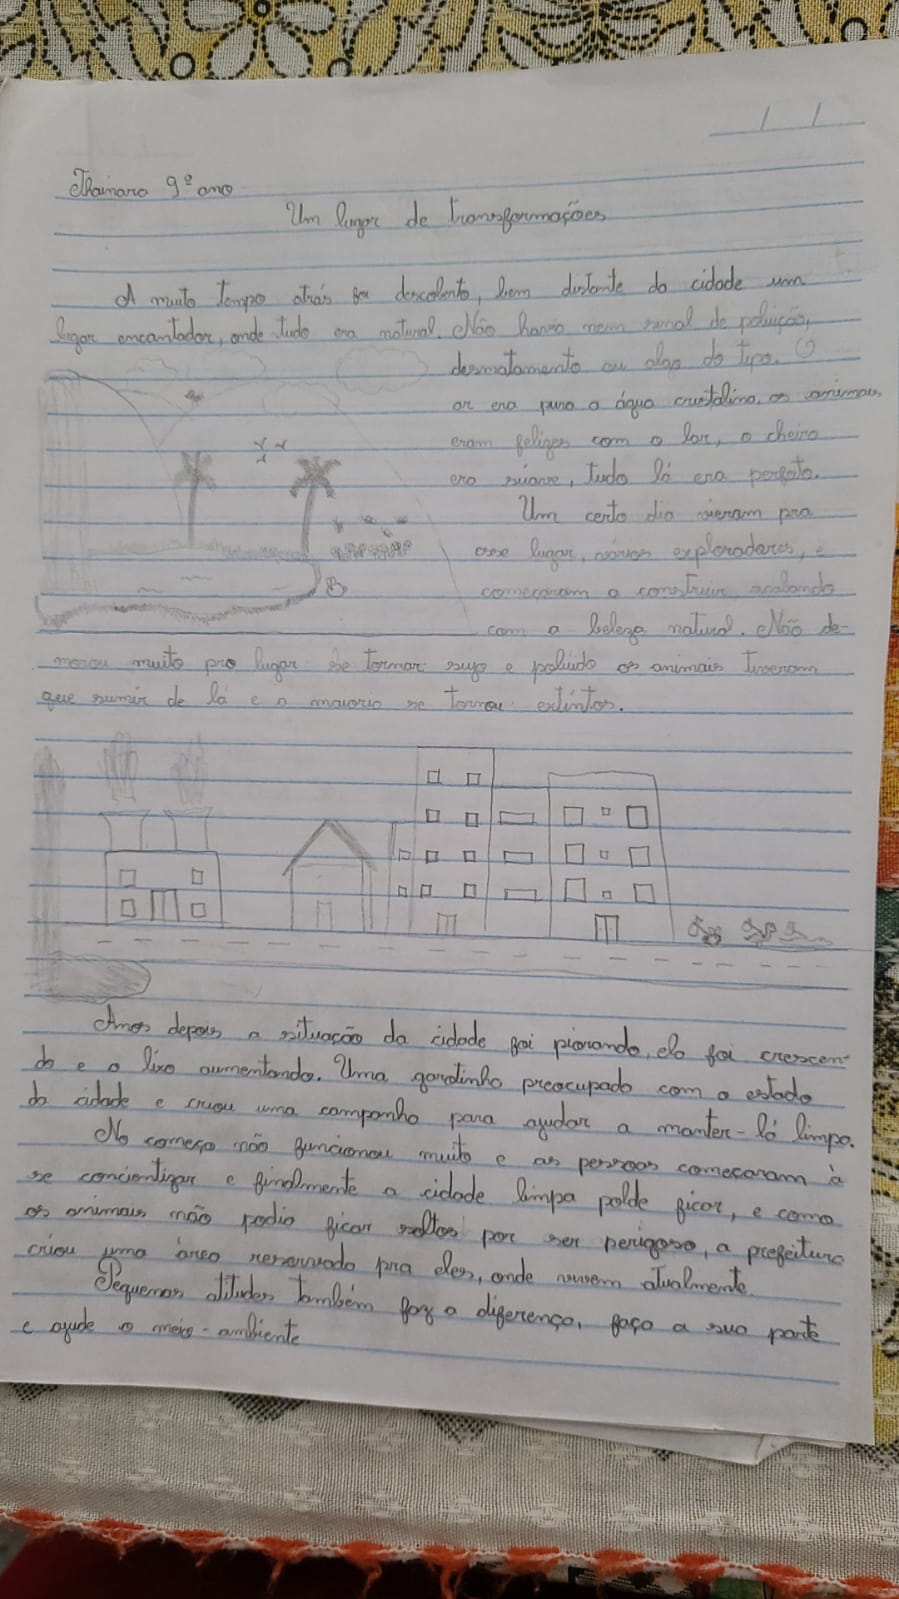 Thainara 9º ano
Um lugar de transformações
A muito tempo atrás foi descoberto, bem distante da cidade um
lugar encantador, onde tudo era natural. Não havia nem sinal de poluição,
desmatamento ou algo do tipo. O
ar era puro a água cristalina, os animais
eram felizes com o lar, o cheiro
era suave, tudo lá era perfeito.
Um certo dia vieram pra
esse lugar, vários exploradores, e
começaram a construir, acabando
com a beleza natural. Não de-
morou muito pro lugar se tornar sujo e poluido os animais tiveram
que sumir de lá e a maioria se tornou extintos.
Anos depois a situação da cidade foi piorando, ela foi crescen-
do e o lixo aumentando. Uma garotinha preocupado com o estado
da cidade e criou uma campanha para ajudar a manter-lá limpa.
No começo não funcionou muito e as pessoas começaram à
se concientizar e finalmente a cidade limpa polde ficar, e como
os animais não podia ficar soltos por ser perigoso, a prefeitura
criou uma área reservada pra eles, onde vivem atualmente.
Pequenas atitudes também faz a diferença, faça a sua parte
e ajude o meio-ambiente